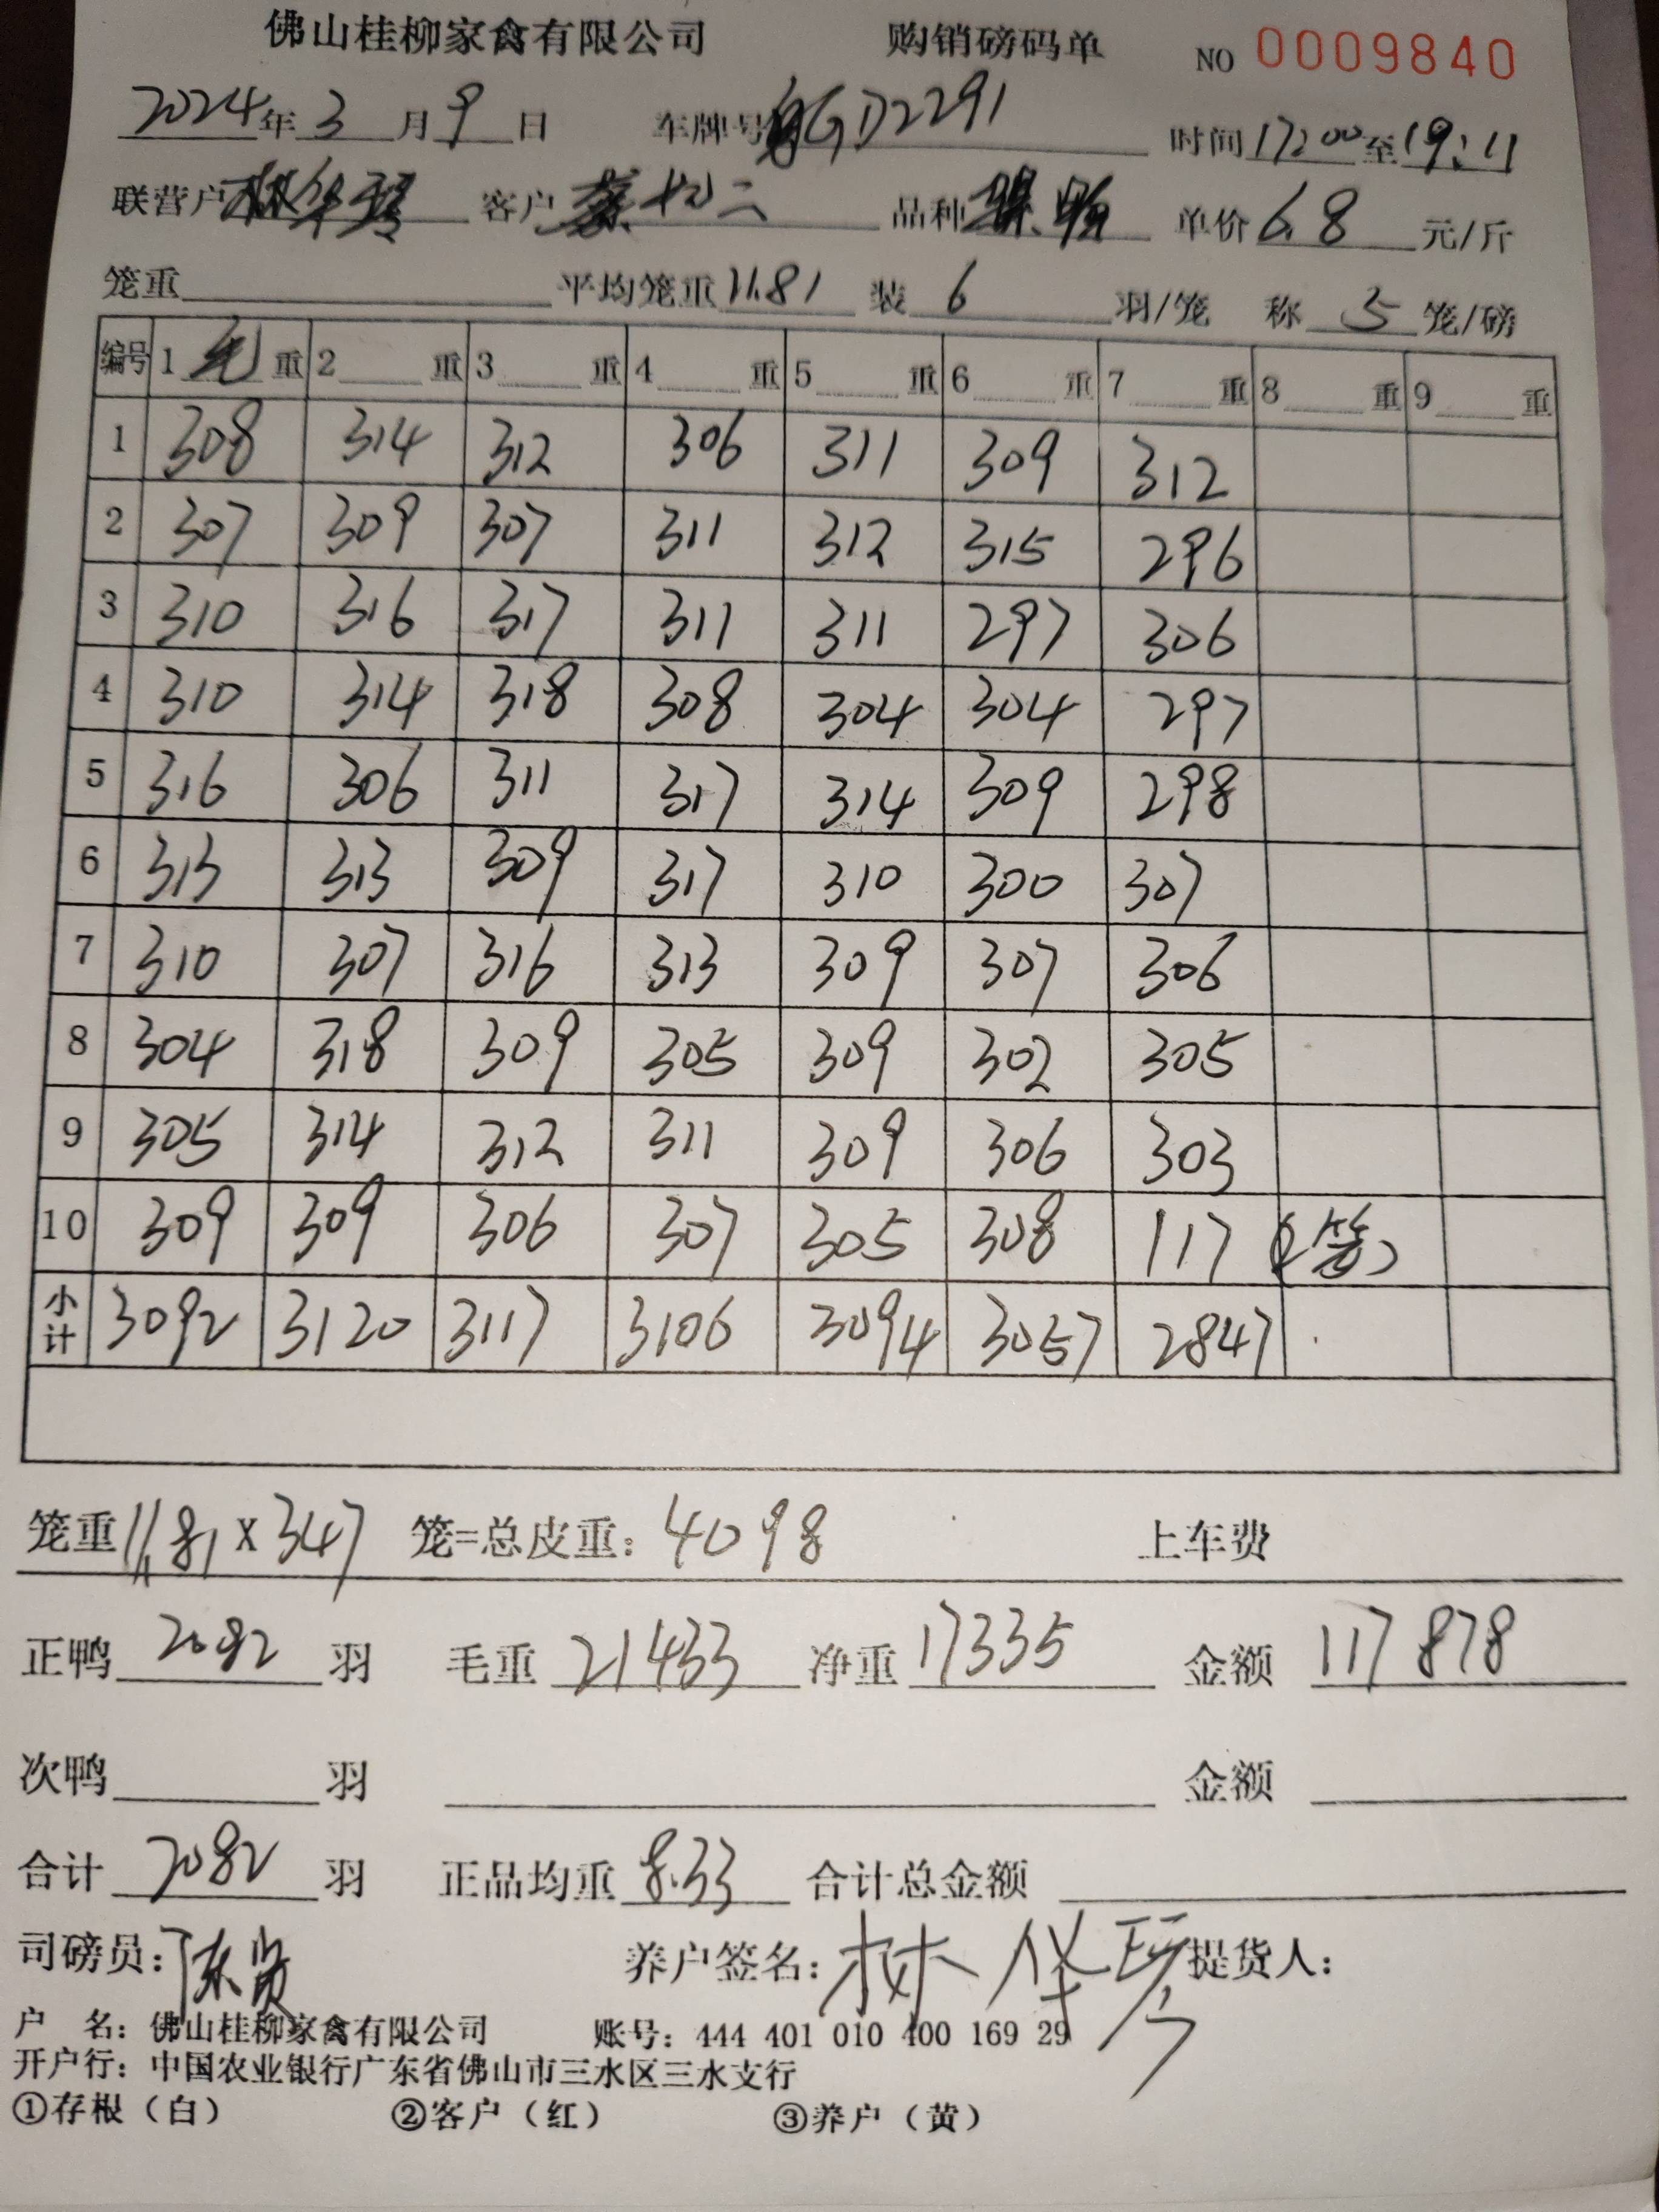 佛山桂柳家禽有限公司 购销磅码单 NO 0009840
2024年3月9日 车牌号GD2291 时间17:00至19:11
联营户林华琴 客户 品种 单价6.8元/斤
笼重 平均笼重11.81 装6羽/笼 称5笼/磅
编号 1毛重 2重 3重 4重 5重 6重 7重 8重 9重
1 308 314 312 306 311 309 312
2 307 309 307 311 312 315 296
3 310 316 317 311 311 297 306
4 310 314 318 308 304 304 297
5 316 306 311 317 314 309 298
6 313 313 309 317 310 300 307
7 310 307 316 313 309 307 306
8 304 318 309 305 309 302 305
9 305 314 312 311 309 306 303
10 309 309 306 307 305 308 117 (2笼)
小计 3092 3120 3117 3106 3094 3057 2847
笼重11.81×347 笼=总皮重:4098 上车费
正鸭2082羽 毛重21433 净重17335 金额117878
次鸭 羽 金额
合计2082羽 正品均重8.33 合计总金额
司磅员: 养户签名:林华琴 提货人:
户 名:佛山桂柳家禽有限公司 账号:444 401 010 400 169 29
开户行:中国农业银行广东省佛山市三水区三水支行
①存根(白) ②客户(红) ③养户(黄)